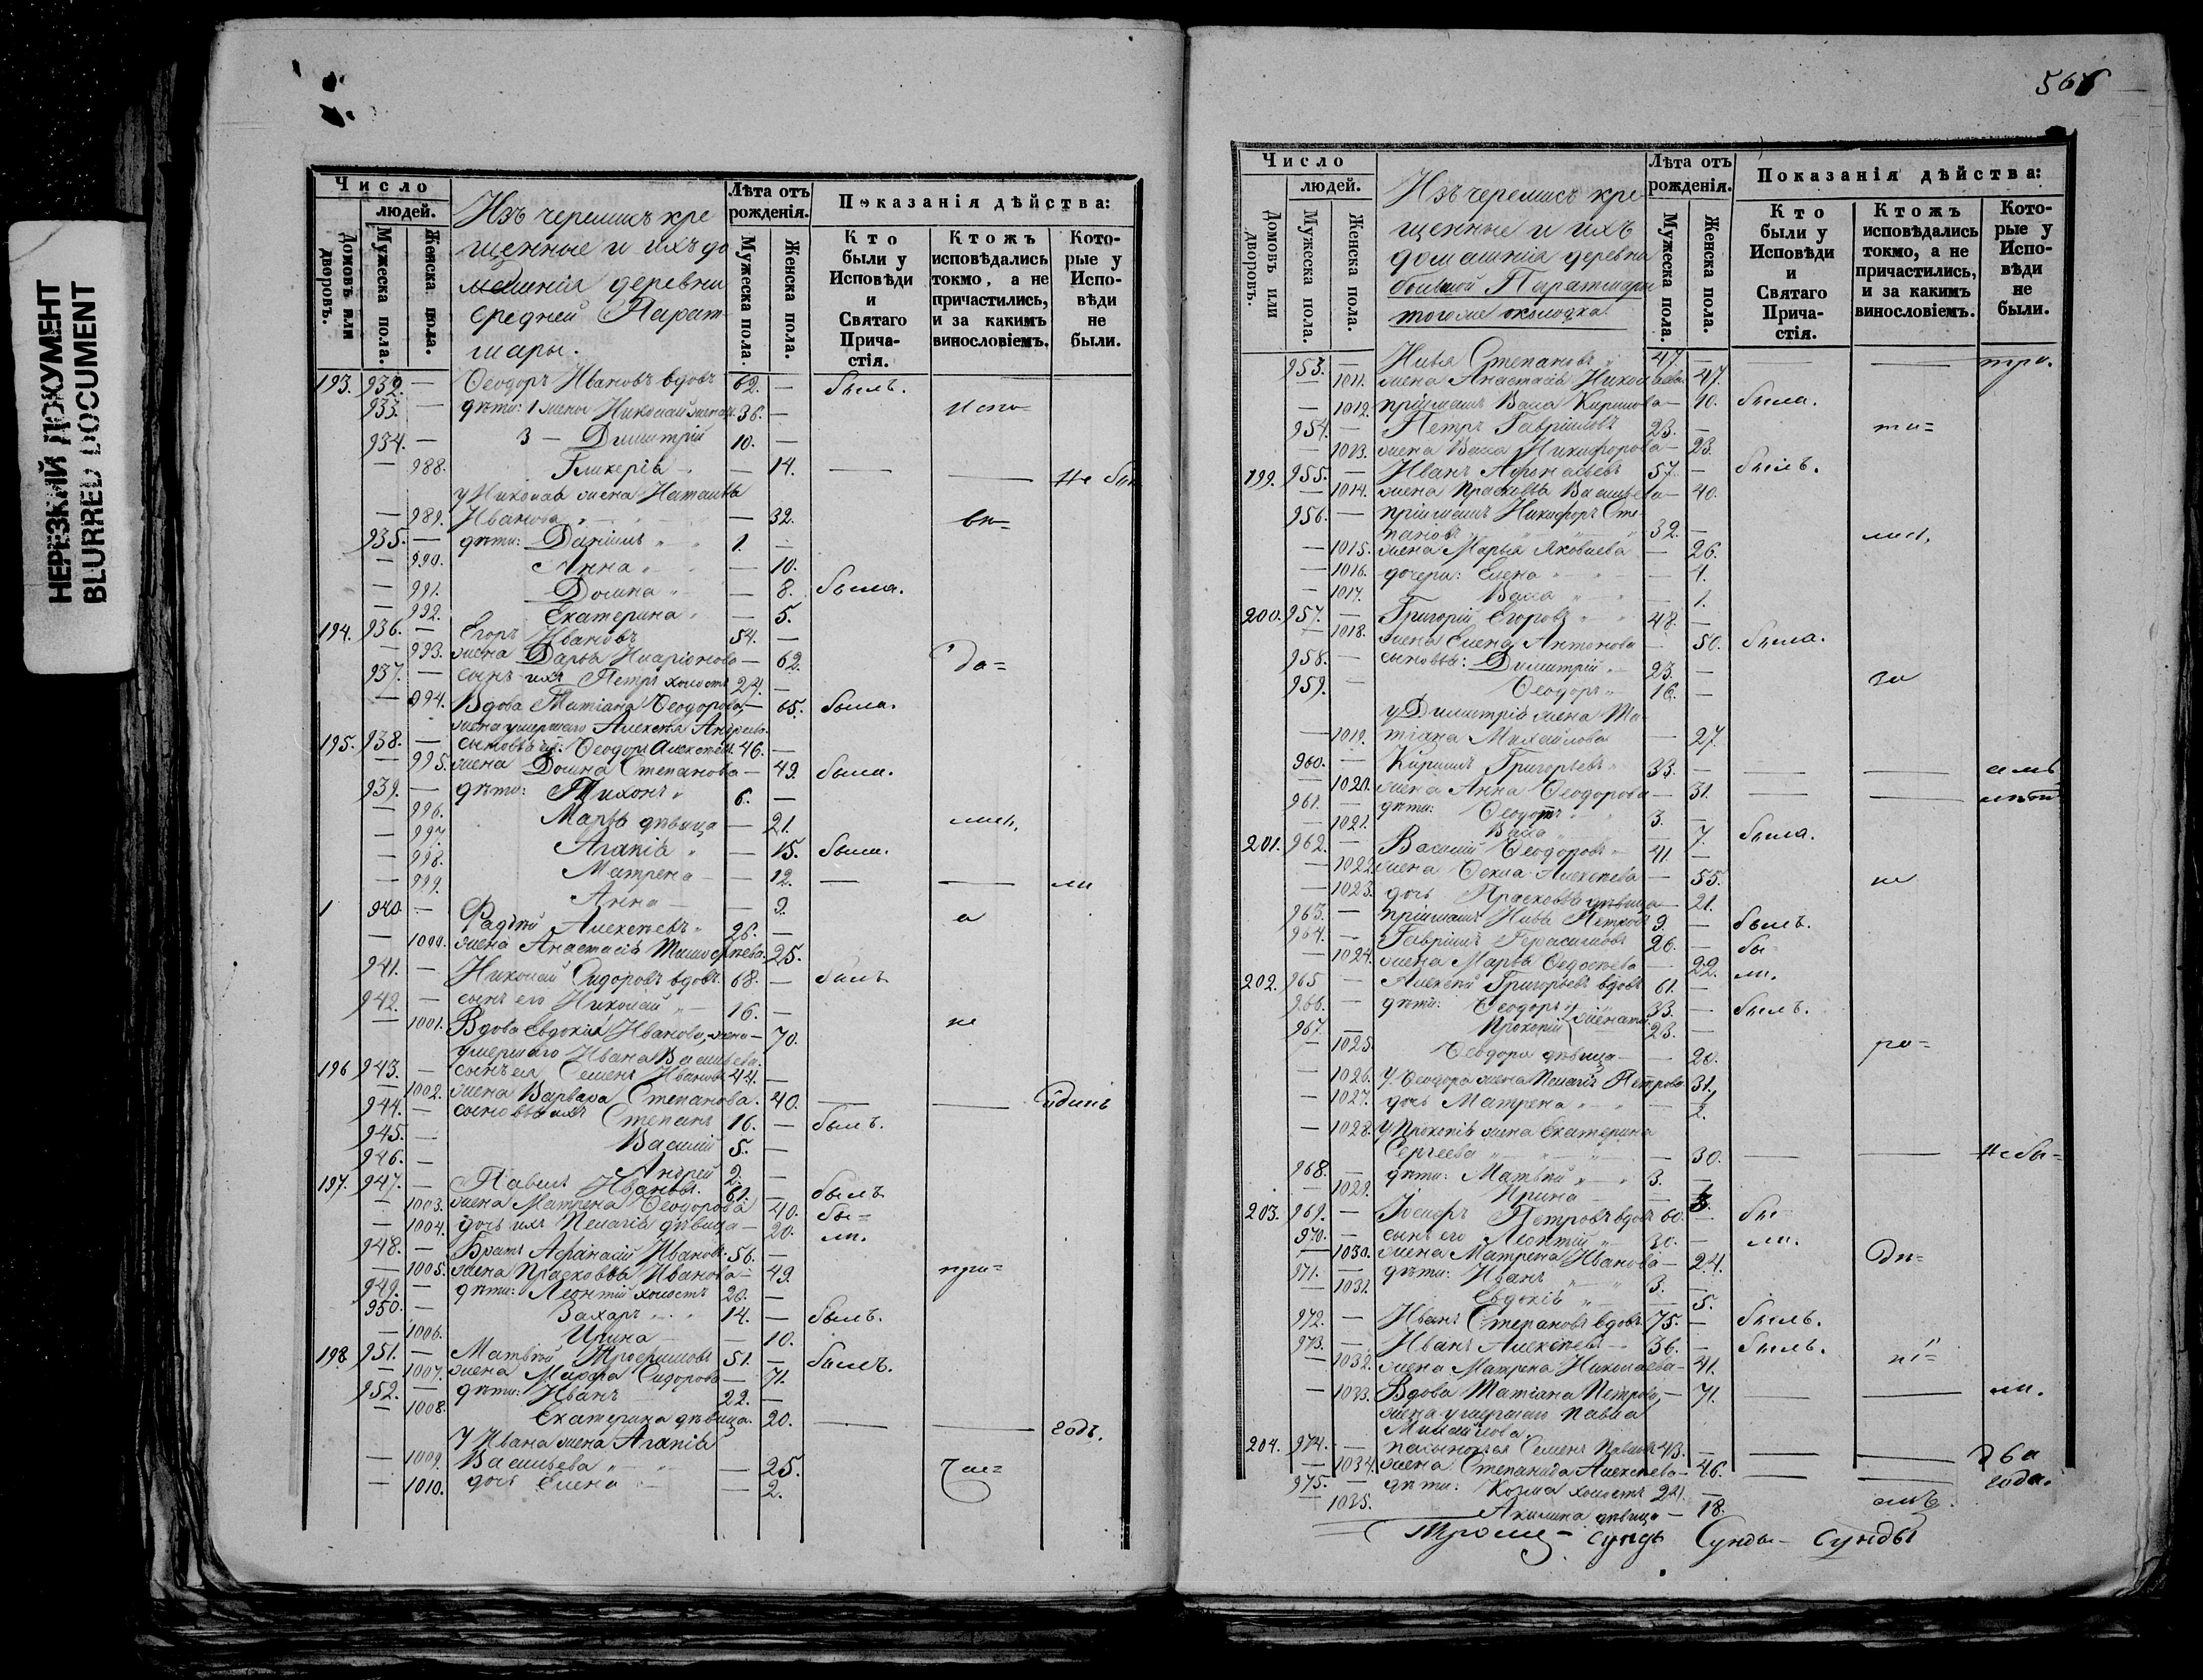 НЕРЕЗКИЙ ДОКУМЕНТ
BLURRED DOCUMENT
Число
людей.
Домовъ или дворовъ.
Мужеска пола.
Женска пола.
Изъ черемисъ кре
щенные и ихъ до
машнія деревни
Средней Парат-
мары.
Лѣта отъ рожденія.
Мужеска пола.
Женска пола.
Показанія дѣйства:
Кто были у Исповѣди и Святаго Прича-стія.
Ктожъ исповѣдались токмо, а не причастились, и за какимъ винословіемъ.
Кото-рые у Испо-вѣди не были.
193. 932. — Ѳеодоръ Ивановъ вдовъ 62. — былъ.
933. — дѣти: Николай женатъ 36. — испо=
934. — 3 — Димитрій 10. —
— 988. Гликерія — 14. — — Не бы
у Николая жена Наталья
— 989. Иванова — 32. вѣ=
935. — дѣти: Даніилъ 1. —
— 990. Анна — 10.
— 991. Домна — 8. была.
— 992. Екатерина — 5.
194. 936. — Егоръ Ивановъ 54. —
— 993. жена Дарья Иларіонова — 62. да=
937. — сынъ ихъ Петръ холостъ 24. —
— 994. Вдова Татіана Ѳеодорова, — 65. была.
жена умершаго Алексѣя Андреева.
195. 938. — сыновья ея: Ѳеодоръ Алексѣевъ 46. —
— 995. жена Домна Степанова — 49. была.
939. — дѣти: Тихонъ 6. —
— 996. Марья дѣвица — 21. лись,
— 997. Агапія — 15. была.
— 998. Матрена — 12. — — ли
— 999. Анна — 9.
1 940. — Фадѣй Алексѣевъ 26. — а
— 1000. жена Анастасія Тимоѳѣева 25.
941. — Николай Сидоровъ вдовъ 68. — былъ
942. — сынъ его Николай 16. —
— 1001. Вдова Евдокія Иванова, жена — 70. не
умершаго Ивана Васильева.
196 943. — сынъ ея Семенъ Ивановъ 44. —
— 1002. жена Варвара Степанова. 40. — — одинъ
944. — сыновья ихъ Степанъ 16. — былъ.
945. — Василій 5. —
946. — Андрей 2. —
197. 947. — Павелъ Ивановъ. 61. — былъ
— 1003. жена Матрена Ѳеодорова 40. бы=
— 1004. дочь ихъ Пелагія дѣвица — 20. ли.
948. — Братъ Аѳанасій Ивановъ 56. —
— 1005. жена Прасковья Иванова — 49. при=
949. — дѣти: Леонтій холостъ 20. —
950. — Захаръ 14. — былъ.
— 1006. Ирина — 10.
198 951. — Матвѣй Трофимовъ 51. — былъ.
— 1007. жена Марфа Сидорова — 71.
952. — дѣти: Иванъ 22. —
— 1008. Екатерина дѣвица. 20. — — годъ.
У Ивана жена Агапія
— 1009. Васильева — 25. час=
— 1010. дочь Елена — 2.
Число
людей.
Домовъ или дворовъ.
Мужеска пола.
Женска пола.
Изъ черемисъ кре
щенные и ихъ
домашнія деревни
большой Паратмары
тогоже околодка.
Лѣта отъ рожденія.
Мужеска пола.
Женска пола.
Показанія дѣйства:
Кто были у Исповѣди и Святаго Прича-стія.
Ктожъ исповѣдались токмо, а не причастились, и за какимъ винословіемъ.
Кото-рые у Испо-вѣди не были.
953. — Илья Степановъ 47. — — — три.
— 1011. жена Анастасія Николаева 47.
— 1012. пріимышъ Васса Кирилова — 10. была.
954. — Петръ Гавріиловъ 23. — ти=
— 1013. жена Васса Никифорова — 23.
199. 955. — Иванъ Афонасьевъ 57. — былъ.
— 1014. жена Прасковья Васильева — 40.
956. — пріимышъ Никифоръ Сте
пановъ 32. —
— 1015. жена Марья Яковлева — 26. лись,
— 1016. дочери: Елена — 4.
— 1017. Васса — 1.
200. 957. — Григорій Егоровъ 48. —
— 1018. жена Елена Антонова — 50. была.
958. — сыновья: Димитрій 23. —
959. — Ѳеодоръ 16. — за
у Димитрія жена Та
— 1019. тіана Михайлова — 27.
960. — Кирилъ Григорьевъ 33. — — —
— 1020. жена Анна Ѳеодорова — 31. — —
961. — дѣти: Ѳеодотъ 3. —
— 1021. Васса 7. была.
201. 962. — Василій Ѳеодоровъ 41. —
— 1022. жена Ѳекла Алексѣева — 55. не
— 1023. дочь Прасковья дѣвица — 21.
963. — пріимышъ Илья Петровъ 9. — былъ.
964. — Гавріилъ Герасимовъ 26. — бы-
— 1024. жена Марья Ѳедосѣева — 22. ли.
202. 965 — Алексѣй Григорьевъ вдовъ 61. —
966. — дѣти: Ѳеодоръ 33. — былъ.
967. — Прокопій женаты 23. —
— 1025. Ѳеодора дѣвица — 20. ра=
— 1026. у Ѳеодора жена Пелагія Петрова 31.
— 1027. дочь Матрена — 2.
— 1028. У Прокопія жена Екатерина
Сергеева — 30. — — Не бы=
968. — дѣти: Матвѣй 3. —
— 1029. Ирина —
203. 969. — Іосифъ Петровъ вдовъ 60. — бы-
970. — сынъ его Леонтій 30. — ли.
— 1030. жена Матрена Иванова — 24. дѣ=
971. — дѣти: Иванъ 3. —
— 1031. Евдокія — 5.
972. — Иванъ Степановъ вдовъ 75. — былъ.
973. — Иванъ Алексѣевъ 36. — былъ.
— 1032. жена Матрена Николаева — 41. ні=
— 1033. Вдова Татіана Петрова, — 71. — — ли.
жена умершаго Павла
Михайлова.
204. 974. — пасынокъ ея Семенъ Павловъ 43. — — — два
— 1034. жена Степанида Алексѣева — 46. — — года.
975. — дѣти: Козма холостъ 24. —
— 1035. Акилина дѣвица — 18. емъ.
Сунды - Сунды